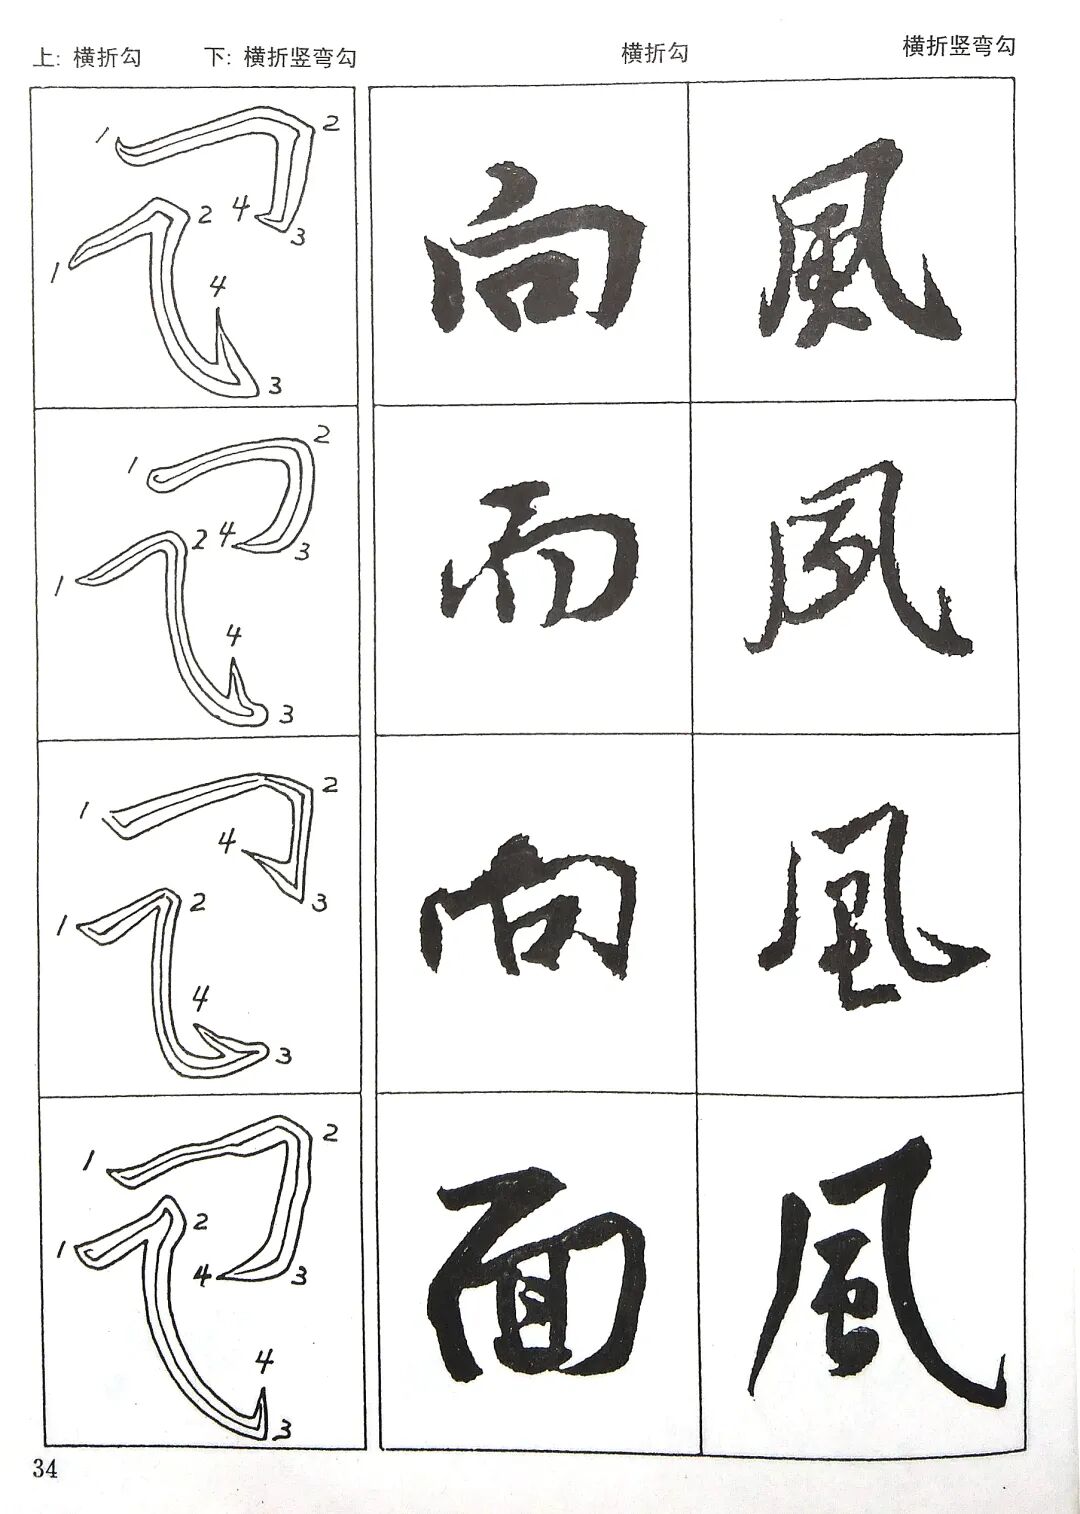 上: 横折勾 下: 横折竖弯勾 横折勾 横折竖弯勾
1 2 3 4
1 2 3 4
向 風
1 2 3 4
1 2 3 4
而 夙
1 2 3 4
1 2 3 4
向 風
1 2 3 4
1 2 3 4
面 風
34